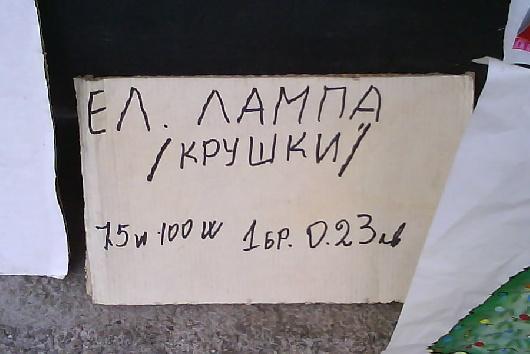 ЕЛ. ЛАМПА
/КРУШКИ/
75 и 100 W 1 БР. 0.23 лв